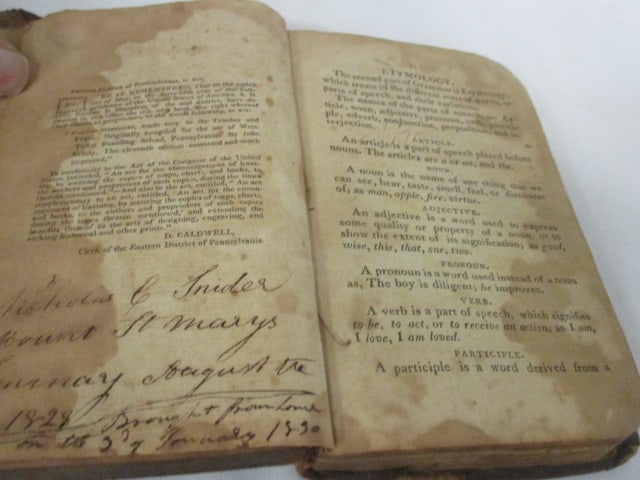 Eastern District of Pennsylvania, to wit:
BE IT REMEMBERED, That on the eighth
day of May, in the forty-fifth year of the Inde-
pendence of the United States of America, A. D.
of the said district, have de-
posited in this office the title of a book, the right whereof
they claim as proprietors, in the words following, to wit:
Grammar, made easy to the Teacher and
Pupil. Originally compiled for the use of West-
Town Boarding School, Pennsylvania. By John
Comly. The eleventh edition corrected and much
improved."
In conformity to the Act of the Congress of the United
States, entitled, "An act for the encouragement of learn-
ing, by securing the copies of maps, charts, and books, to
the authors and proprietors of such copies, during the times
therein mentioned."—And also to the act, entitled, "An act
supplementary to an act, entitled, "An act for the encou-
ragement of learning, by securing the copies of maps, charts,
and books, to the authors and proprietors of such copies
during the times therein mentioned," and extending the
benefits thereof to the arts of designing, engraving, and
etching historical and other prints."
D. CALDWELL,
Clerk of the Eastern District of Pennsylvania.
Nicholas C Snider
Mount St Marys
August the
1828 Brought from home
on the 3d of January 1830
ETYMOLOGY.
The second part of Grammar is Etymology:
which treats of the different sorts of words, or
parts of speech, and their variations.
The names of the parts of speech are Ar-
ticle, noun, adjective, pronoun, verb, partici-
ple, adverb, conjunction, preposition, and in-
terjection.
ARTICLE.
An article is a part of speech placed before
nouns. The articles are a or an, and the.
NOUN.
A noun is the name of any thing that we
can see, hear, taste, smell, feel, or discourse
of; as man, apple, fire, virtue.
ADJECTIVE.
An adjective is a word used to express
some quality or property of a noun, or to
show the extent of its signification; as good,
wise, this, that, one, two.
PRONOUN.
A pronoun is a word used instead of a noun
as, The boy is diligent; he improves.
VERB.
A verb is a part of speech, which signifies
to be, to act, or to receive an action; as I am,
I love, I am loved.
PARTICIPLE.
A participle is a word derived from a